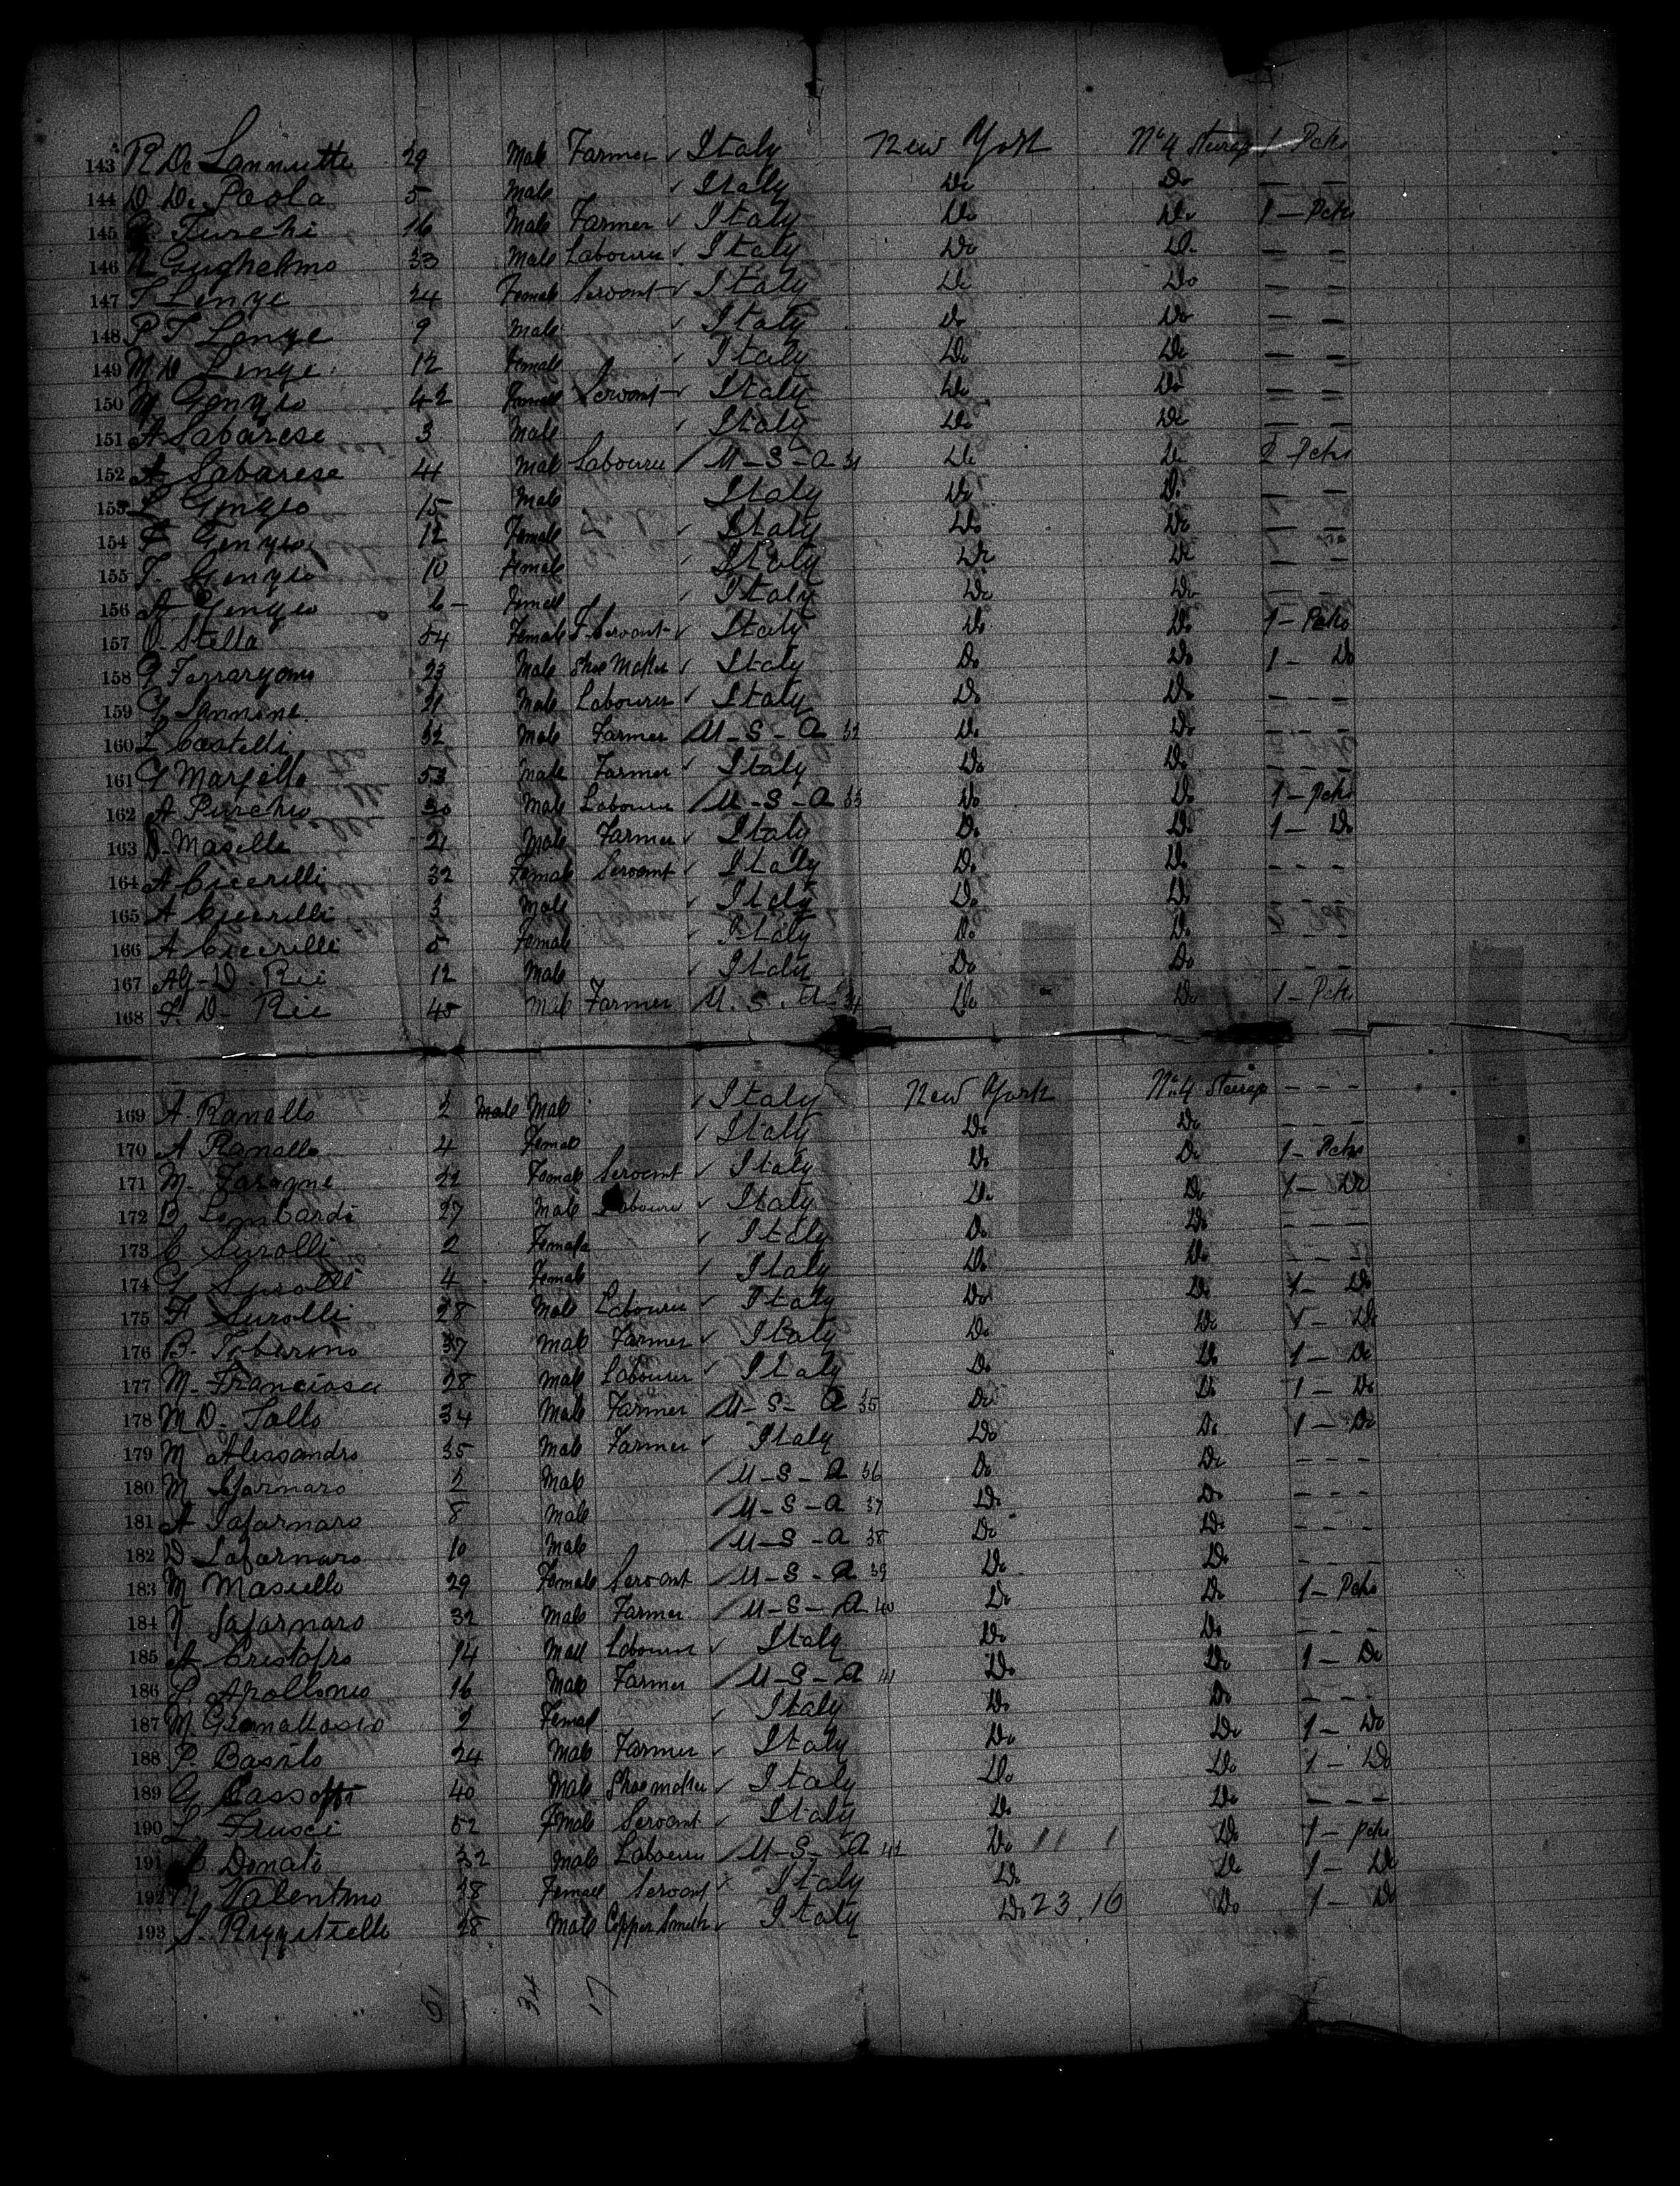 143 R. De Lannutte 29 Male Farmer ✓ Italy New York No 4 Steerage 1 Pcks
144 D. De Paola 5 Male ✓ Italy Do Do — —
145 Furchi 16 Male Farmer ✓ Italy Do Do 1 — Pcks
146 Gughelmo 33 Male Labourer ✓ Italy Do Do — —
147 T Lenze 24 Female Servant ✓ Italy Do Do — —
148 P T Lenze 9 Male ✓ Italy Do Do — —
149 M D Lenze 12 Female ✓ Italy Do Do — —
150 M Genzio 42 Female Servant ✓ Italy Do Do — —
151 A Sabarese 3 Male ✓ Italy Do Do — —
152 A Sabarese 41 Male Labourer / U-S-A 31 Do Do 2 Pcks
153 L Genzio 15 Male Italy Do Do — —
154 F Genzio 12 Female ✓ Italy Do Do — —
155 T. Genzio 10 Female ✓ Italy Do Do — —
156 A Genzio 6 — Female ✓ Italy Do Do — —
157 O. Stella 54 Female F. Servant ✓ Italy Do Do 1 — Pcks
158 G Ferraryoms 23 Male Shoe Maker ✓ Italy Do Do 1 — Do
159 G Iannone 21 Male Labourer ✓ Italy Do Do - - -
160 L Castelli 32 Male Farmer / U-S-A 32 Do Do - - -
161 G Marfello 53 Male Farmer ✓ Italy Do Do - - -
162 A Purchio 30 Male Labourer / U-S-A 33 Do Do 1 — Pcks
163 D. Masella 21 Male Farmer ✓ Italy Do Do 1 — Do
164 A Ciccrilli 32 Female Servant ✓ Italy Do Do - - -
165 A Ciccrilli 3 Male ✓ Italy Do Do
166 A Ciccrilli 5 Female ✓ Italy Do Do - - -
167 Ag-D. Rie 12 Male ✓ Italy Do Do - - -
168 F. D. Rie 45 Male Farmer / U.S.A 34 Do Do 1 — Pcks
169 A. Ranallo 2 Male Male ✓ Italy New York No 4 Steerage - - -
170 A Ranallo 4 Female ✓ Italy Do Do - - -
171 M. Faragne 22 Female Servant ✓ Italy Do Do 1 — Pcks
172 D. Lombardi 27 Male Labourer ✓ Italy Do Do 1 — Do
173 C Surolli 2 Female ✓ Italy Do Do - - -
174 G Surolli 4 Female ✓ Italy Do Do - - -
175 F Surolli 28 Male Labourer ✓ Italy Do Do 1 — Do
176 B. Toberino 37 Male Farmer ✓ Italy Do Do 1 — Do
177 M. Franciosa 28 Male Labourer ✓ Italy Do Do 1 — Do
178 M D. Sallo 34 Male Farmer / U-S-A 35 Do Do 1 — Do
179 M Alessandro 35 Male Farmer ✓ Italy Do Do 1 — Do
180 M Safarnaro 2 Male / U-S-A 36 Do Do - - -
181 A Safarnaro 8 Male / U-S-A 37 Do Do - - -
182 D Safarnaro 10 Male / U-S-A 38 Do Do - - -
183 M Masiello 29 Female Servant / U-S-A 39 Do Do - - -
184 N Safarnaro 32 Male Farmer / U-S-A 40 Do Do 1 — Pcks
185 A Cristofro 14 Male Labourer ✓ Italy Do Do - - -
186 P. Apollonio 16 Male Farmer / U-S-A 41 Do Do 1 — Do
187 M. Giamattosio 2 Female ✓ Italy Do Do - - -
188 P. Basilo 24 Male Farmer ✓ Italy Do Do 1 — Do
189 G 40 Male Shoemaker ✓ Italy Do Do 1 — Do
190 L. Frusci 52 Female Servant ✓ Italy Do Do - - -
191 Donato 32 Male Labourer / U-S-A 42 Do 11 1 Do 1 — Pcks
192 Valentino 38 Female Servant ✓ Italy Do Do 1 — Do
193 S. Rizzitiello 28 Male Copper Smith ✓ Italy Do 23.10 Do 1 — Do
51 34 17